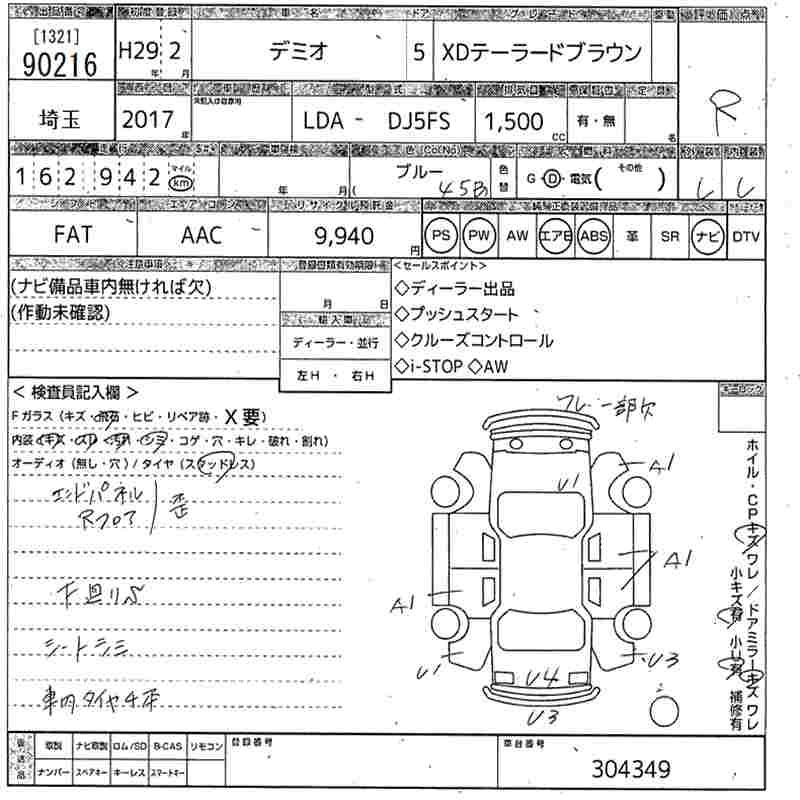 出品番号 初度登録 車名 ドア グレード 駆動 評価点
[1321]
90216 H29 2 デミオ 5 XDテーラードブラウン
年 月
R
型式 排気量 定員
埼玉 2017 年 LDA - DJ5FS 1,500 cc 有・無 名
走行 車検 外色(Co(No) 燃料 外装 内装
162942 マイル km 年 月 ( ブルー 45B 色替 G・D・電気( その他 )
シフト エアコン リサイクル預託金
FAT AAC 9,940 円 PS PW AW エアB ABS 革 SR ナビ DTV
注意事項 登録書類有効期限 <セールスポイント>
(ナビ備品車内無ければ欠) 月 日 ◇ディーラー出品
(作動未確認) ◇プッシュスタート
輸入車
ディーラー・並行 ◇クルーズコントロール
左H ・ 右H ◇i-STOP ◇AW
< 検査員記入欄 >
Fガラス (キズ・飛石・ヒビ・リペア跡・X要)
内装 (キズ・スリ・汚れ・シミ・コゲ・穴・キレ・破れ・割れ)
オーディオ (無し・穴) / タイヤ (スタッドレス)
エンドパネル
Rフロア 歪
下廻りS
シートシミ
車内タイヤ4本
フレ 一部欠
U1
A1
A1
A1
U1
U4
U3
U3
ホイル・CPキズワレ/ドアミラーキズワレ
小キズ有 小U有 補修有
後送品 取説 ナビ取説 ロム/SD B-CAS リモコン 登録番号 車台番号
ナンバー スペアキー キーレス スマートキー
304349